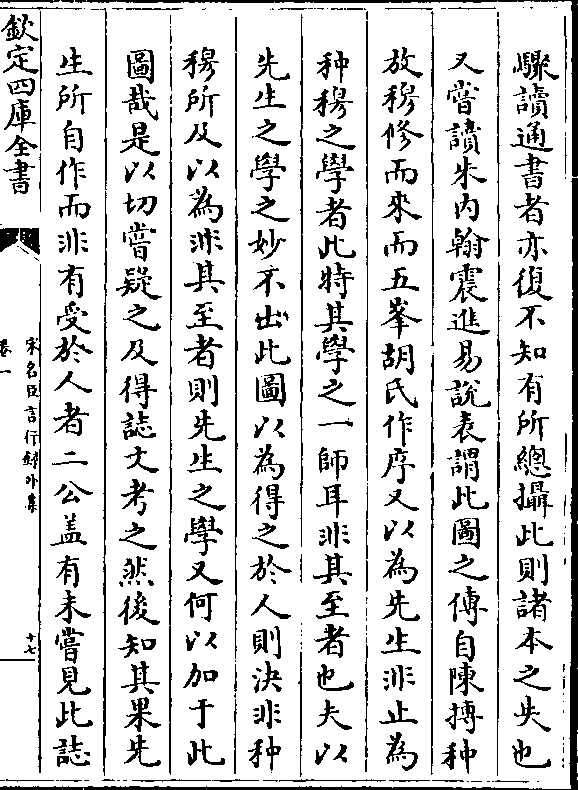 驟讀通書者亦復不知有所總攝此則諸本之失也
又嘗讀朱内翰震進易說表謂此圖之傳自陳摶种
放穆修而來而五峯胡氏作序又以為先生非止為
种穆之學者此特其學之一師耳非其至者也夫以
先生之學之妙不出此圖以為得之於人則決非种
穆所及以為非其至者則先生之學又何以加于此
圖哉是以切嘗疑之及得誌文考之然後知其果先
生所自作而非有受於人者二公盖有未嘗見此誌
欽定四庫全書
宋名臣言行錄外集
卷一
十七